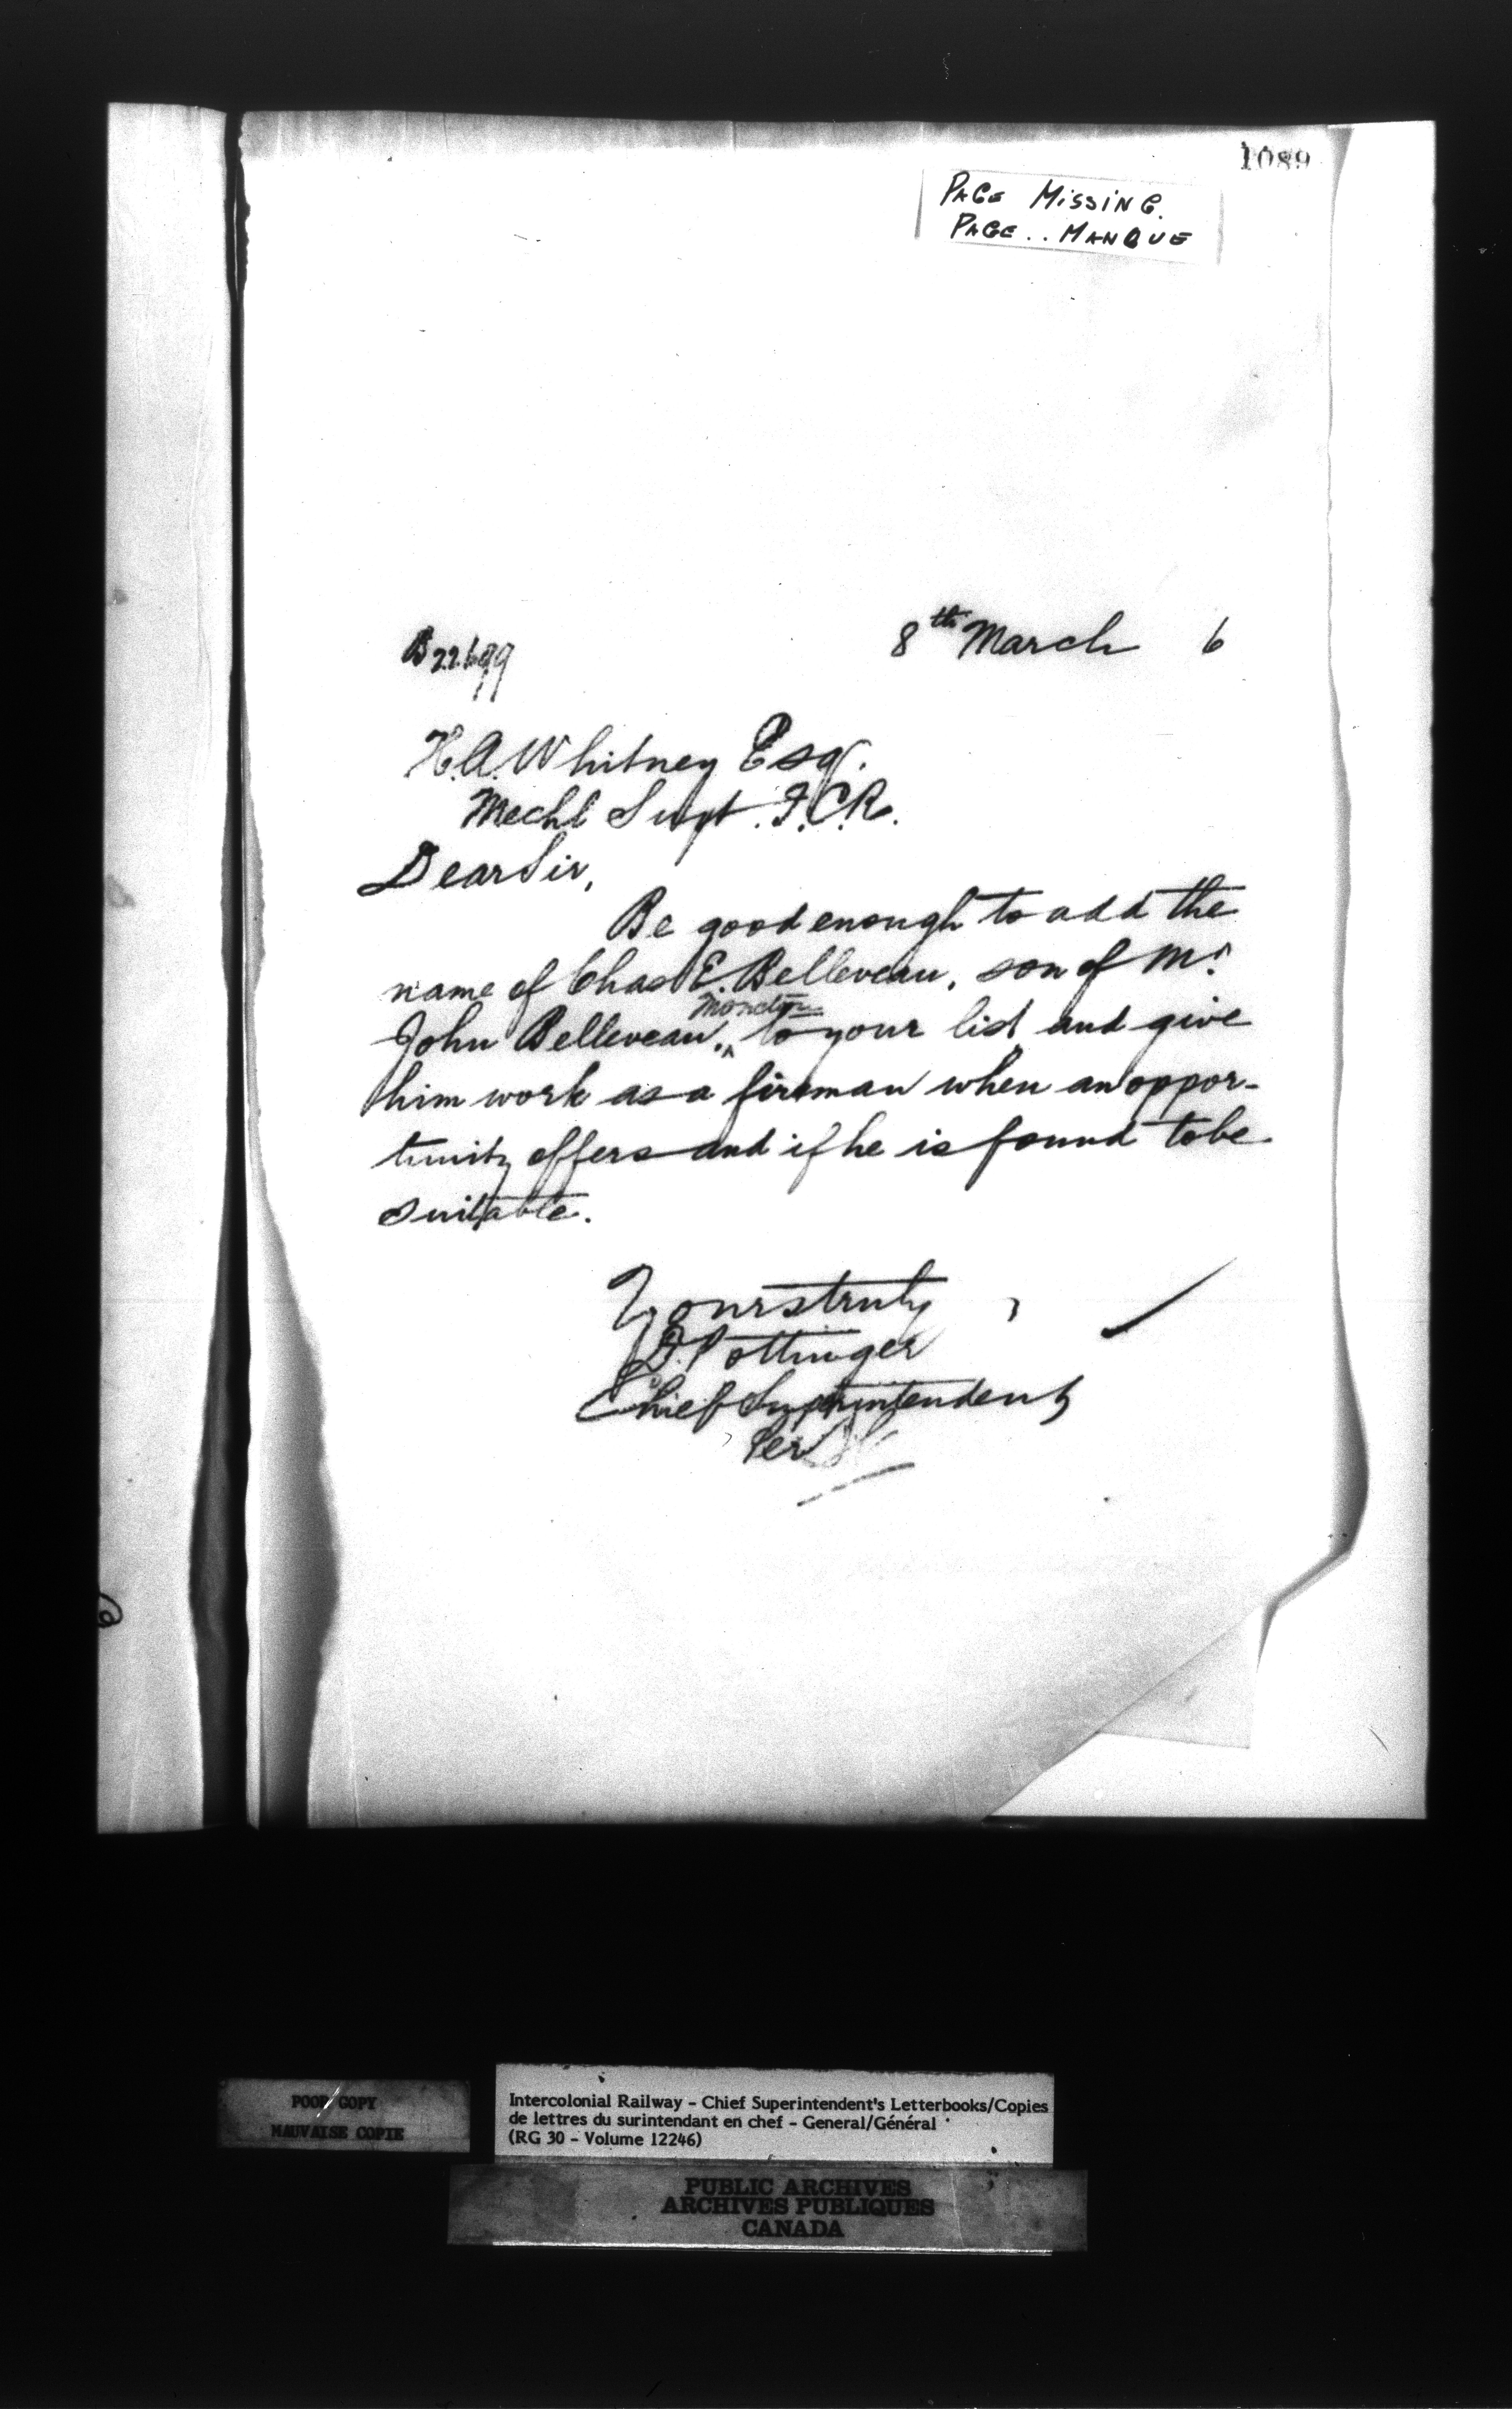 1089
PAGE MISSING.
PAGE .. MANQUE
8th March 6
B22699
H.A. Whitney Esq.
Mechl Supt. I.C.R.
Dear Sir,
Be good enough to add the
name of Chas E. Belleveau, son of Mr.
John Belleveau, Moncton to your list and give
him work as a fireman when an oppor-
tunity offers and if he is found to be
suitable.
Yours truly
D. Pottinger
Chief Superintendent
Per
POOR COPY
MAUVAISE COPIE
Intercolonial Railway - Chief Superintendent's Letterbooks/Copies
de lettres du surintendant en chef - General/Général
(RG 30 - Volume 12246)
PUBLIC ARCHIVES
ARCHIVES PUBLIQUES
CANADA